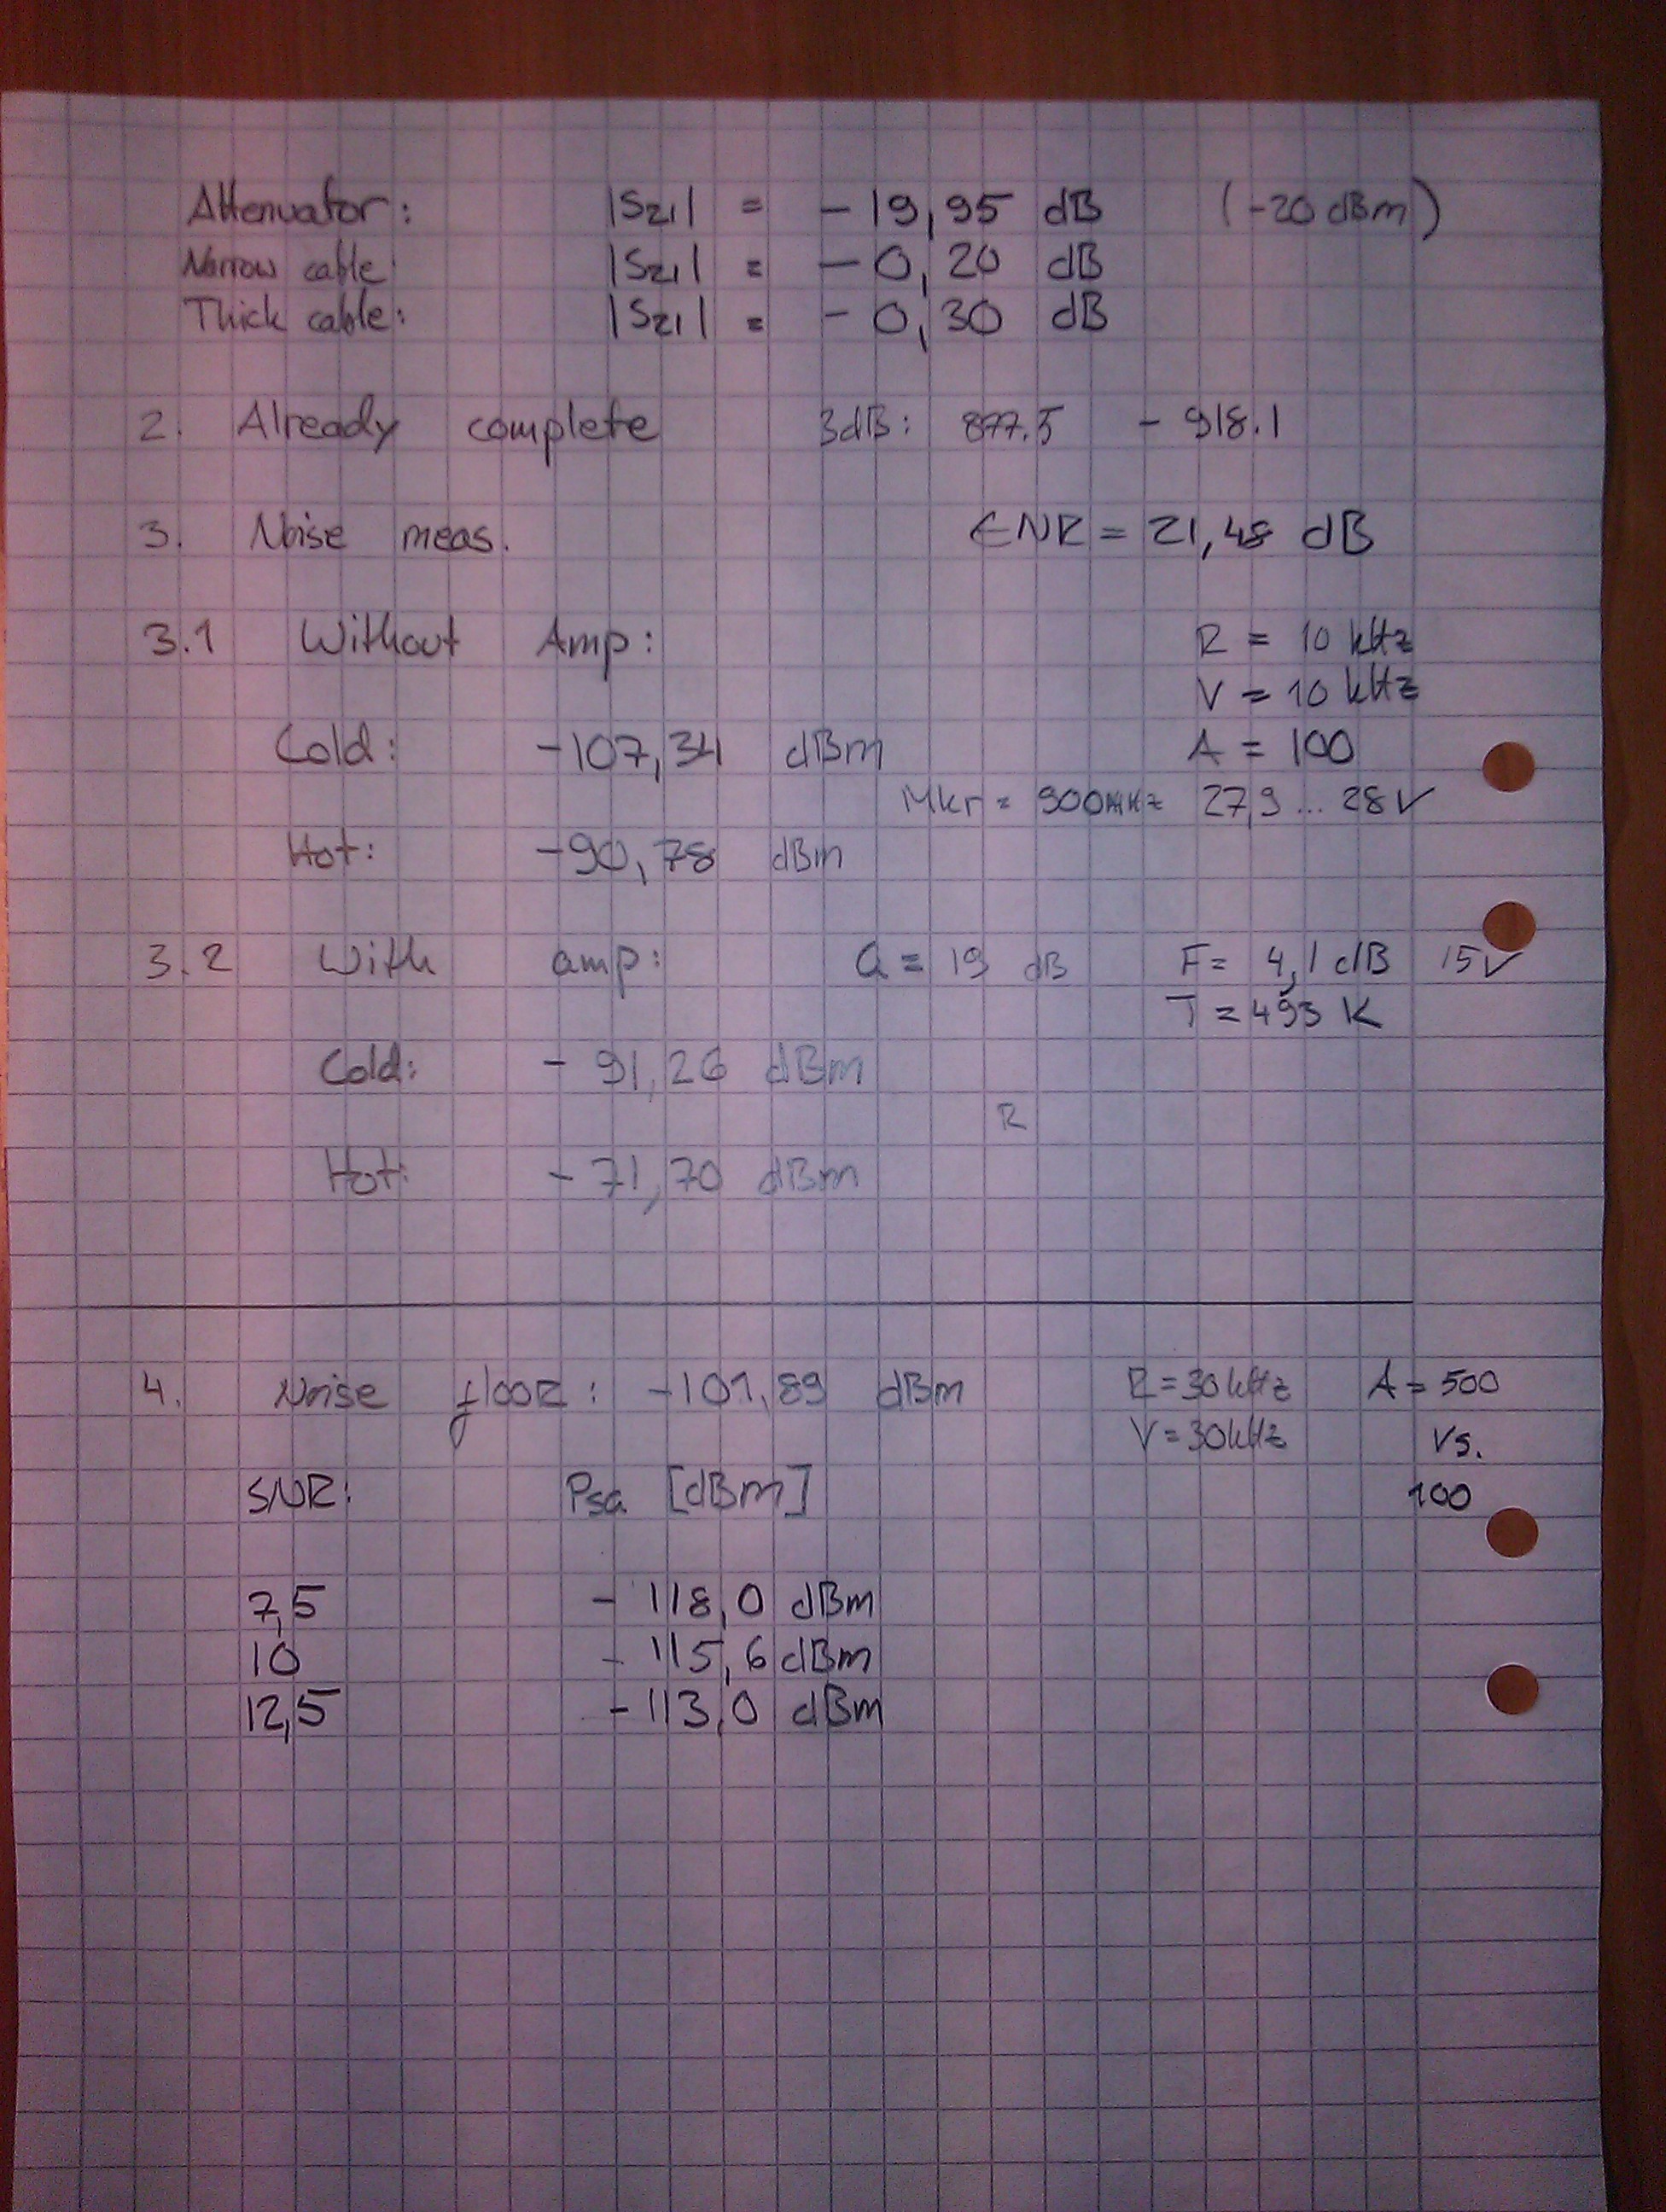 Attenuator: |S21| = -19,95 dB (-20 dBm)
Narrow cable |S21| = -0,20 dB
Thick cable: |S21| = -0,30 dB
2. Already complete 3dB: 877.5 - 918.1
3. Noise meas. ENR = 21,48 dB
3.1 Without Amp: R = 10 kHz
V = 10 kHz
Cold: -107,34 dBm A = 100
Mkr = 900MHz 27,9 ... 28V
Hot: -90,78 dBm
3.2 With amp: G = 19 dB F = 4,1 dB 15V
T = 493 K
Cold: - 91,26 dBm
R
Hot: - 71,70 dBm
4. Noise flooR: -101,89 dBm R = 30 kHz A = 500
V = 30kHz Vs.
SNR: Psa [dBm] 100
7,5 - 118,0 dBm
10 - 115,6 dBm
12,5 - 113,0 dBm